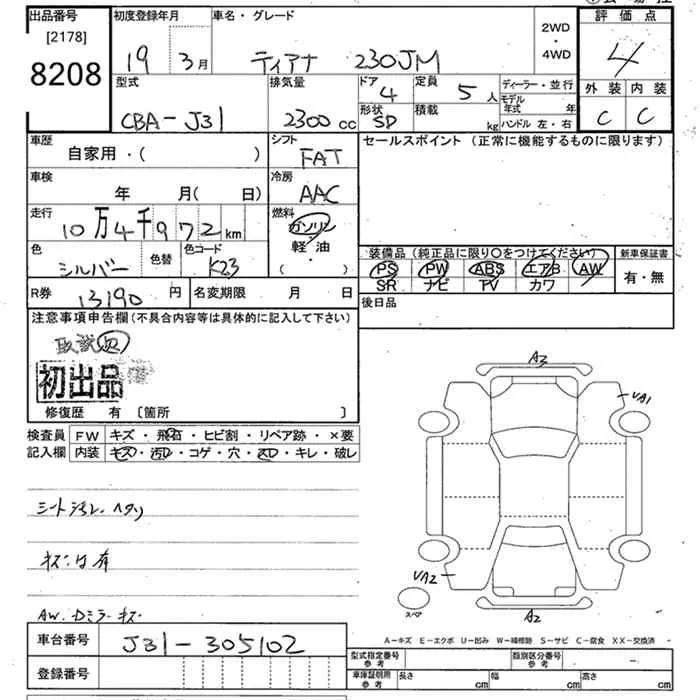 出品番号 初度登録年月 車名・グレード 2WD・4WD 評価点
[2178]
8208 19 3月 ティアナ 230JM 4
型式 排気量 ドア 4 定員 5人 ディーラー・並行 外装 内装
CBA-J31 2300cc 形状 SD 積載 kg モデル年式 年 C C
ハンドル 左・右
車歴 シフト セールスポイント (正常に機能するものに限ります)
自家用・( ) FAT
車検 冷房
年 月( 日) AAC
走行 燃料
10万4千972km ガソリン
軽・油
( )
色 色替 色コード 装備品 (純正品に限り○をつけてください) 新車保証書
シルバー K23 PS PW ABS エアB AW 有・無
SR ナビ TV カワ
R券 13190円 名変期限 月 日 後日品
注意事項申告欄(不具合内容等は具体的に記入して下さい)
取説
初出品
修復歴 有 [箇所 ]
検査員 FW キズ・飛石・ヒビ割・リペア跡・×要
記入欄 内装 キズ・汚レ・コゲ・穴・スレ・キレ・破レ
シート汚レ、ヘタリ
有
AW、Dミラーキズ
A3
VA1
VA2
A2
スペア
A-キズ E-エクボ U-凹み W-補修跡 S-サビ C-腐食 XX-交換済
車台番号 J31-305102
登録番号
型式指定番号 参考 類別区分番号 参考
車庫証明用 参考 長さ cm 幅 cm 高さ cm